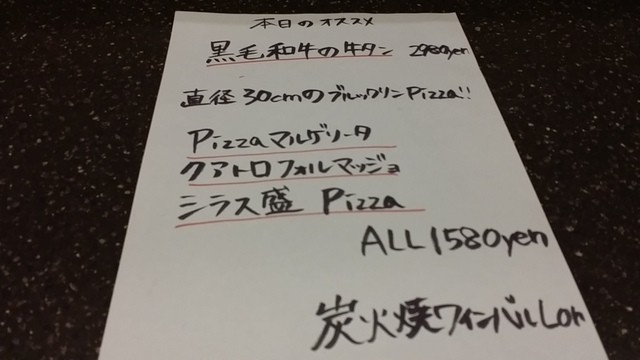 本日のオススメ
黒毛和牛の牛タン 2980yen
直径30cmのブルックリンPizza!!
Pizzaマルゲリータ
クアトロフォルマッジョ
シラス盛 Pizza
ALL1580yen
炭火焼ワインバルLon